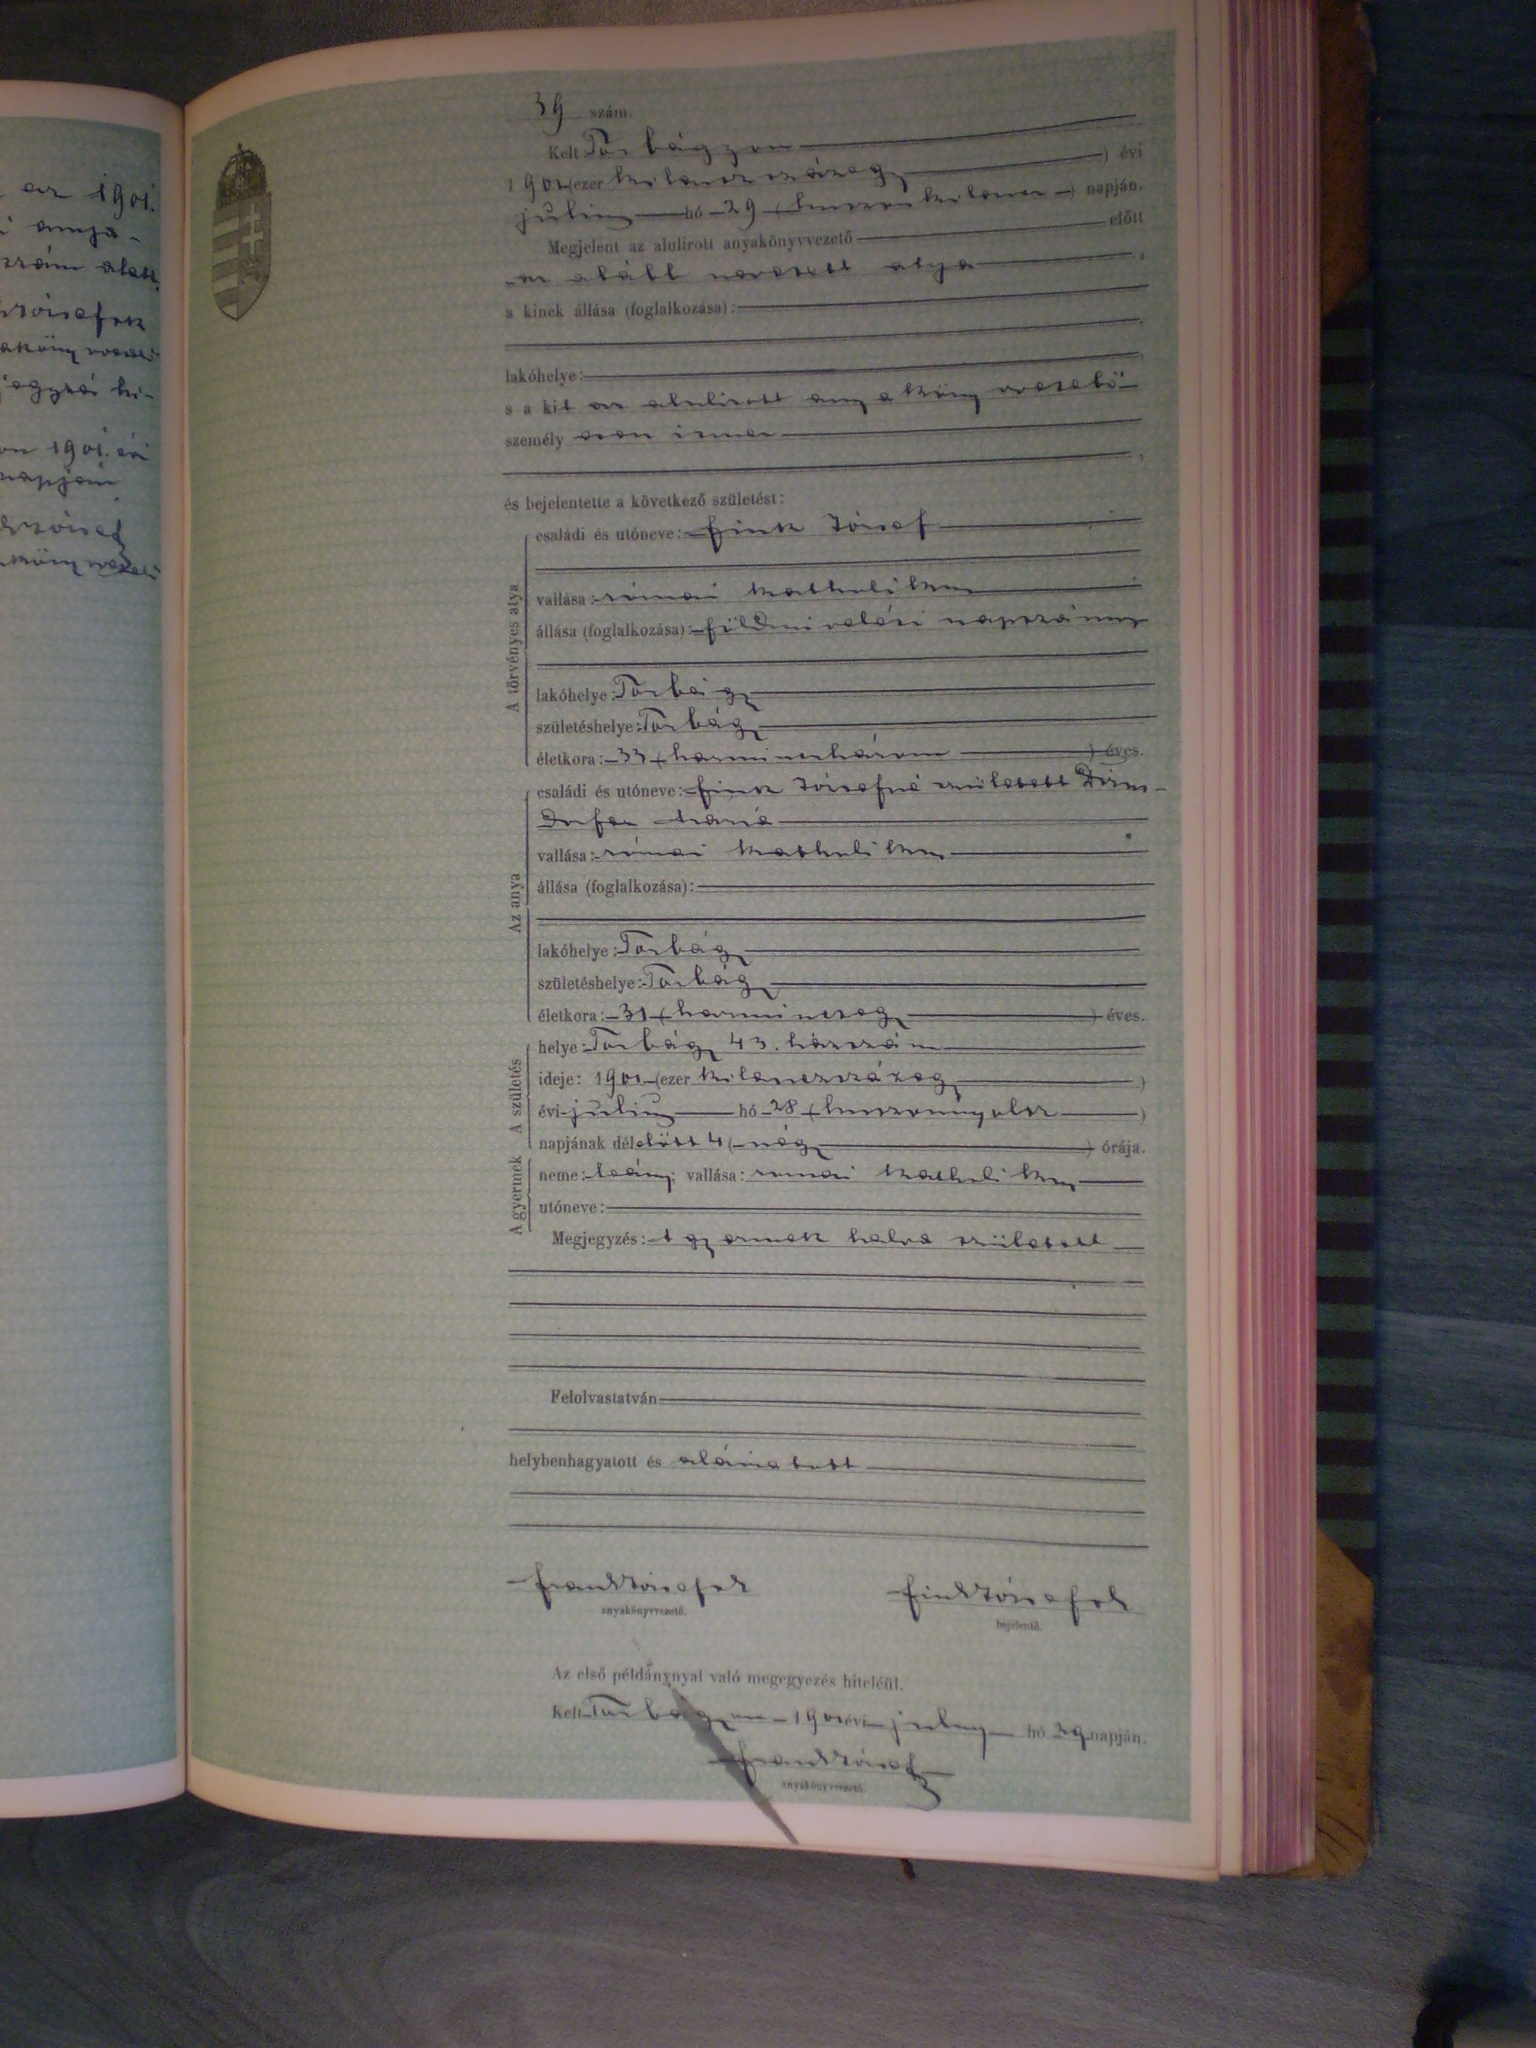 az 1901.
szám alatt
on 1901. évi
napján
39 szám.
Kelt Torbágyon
1901 (ezer kilenczszázegy ) évi
julius hó 29 (huszonkilencz ) napján.
Megjelent az alulirott anyakönyvvezető előtt
az alább nevezett atya ,
a kinek állása (foglalkozása):
lakóhelye:
s a kit az alulirott anyakönyvvezető
személyesen ismer
és bejelentette a következő születést:
A törvényes atya
családi és utóneve: Fink József
vallása: római katholikus
állása (foglalkozása): földmivelési napszámos
lakóhelye: Torbágy
születéshelye: Torbágy
életkora: 33 (harminczhárom ) éves.
Az anya
családi és utóneve: Fink Józsefné született Dirn-
dorfer Mária
vallása: római katholikus
állása (foglalkozása):
lakóhelye: Torbágy
születéshelye: Torbágy
életkora: 31 (harminczegy ) éves.
A születés
helye: Torbágy 43. házszám
ideje: 1901 (ezer kilenczszázegy )
évi julius hó 28 (huszonnyolcz )
napjának délelőtt 4 (négy ) órája.
A gyermek
neme: leány; vallása: római katholikus
utóneve:
Megjegyzés: A gyermek halva született
Felolvastatván
helybenhagyatott és aláiratott
Frank József k Fink József k
anyakönyvvezető. bejelentő.
Az első példánynyal való megegyezés hiteléül.
Kelt Torbágyon 1901 évi julius hó 29 napján.
Frank József
anyakönyvvezető.